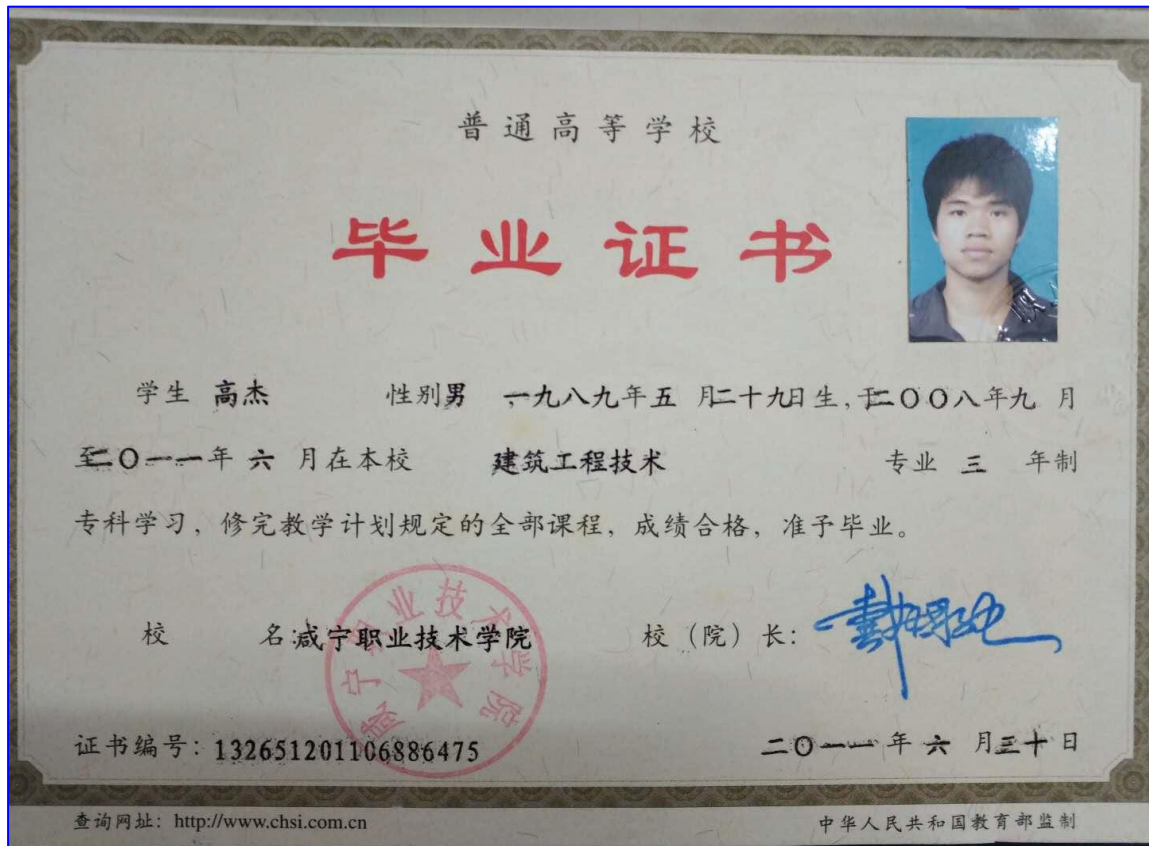 普通高等学校
毕业证书
学生 高杰 性别男 一九八九年五 月二十九日生,于二〇〇八年九 月
至二〇一一年 六 月在本校 建筑工程技术 专业 三 年制
专科学习，修完教学计划规定的全部课程，成绩合格，准予毕业。
校 名:咸宁职业技术学院 校（院）长:
咸宁职业技术学院
证书编号: 132651201106886475 二〇一一 年 六 月三十日
查询网址: http://www.chsi.com.cn 中华人民共和国教育部监制